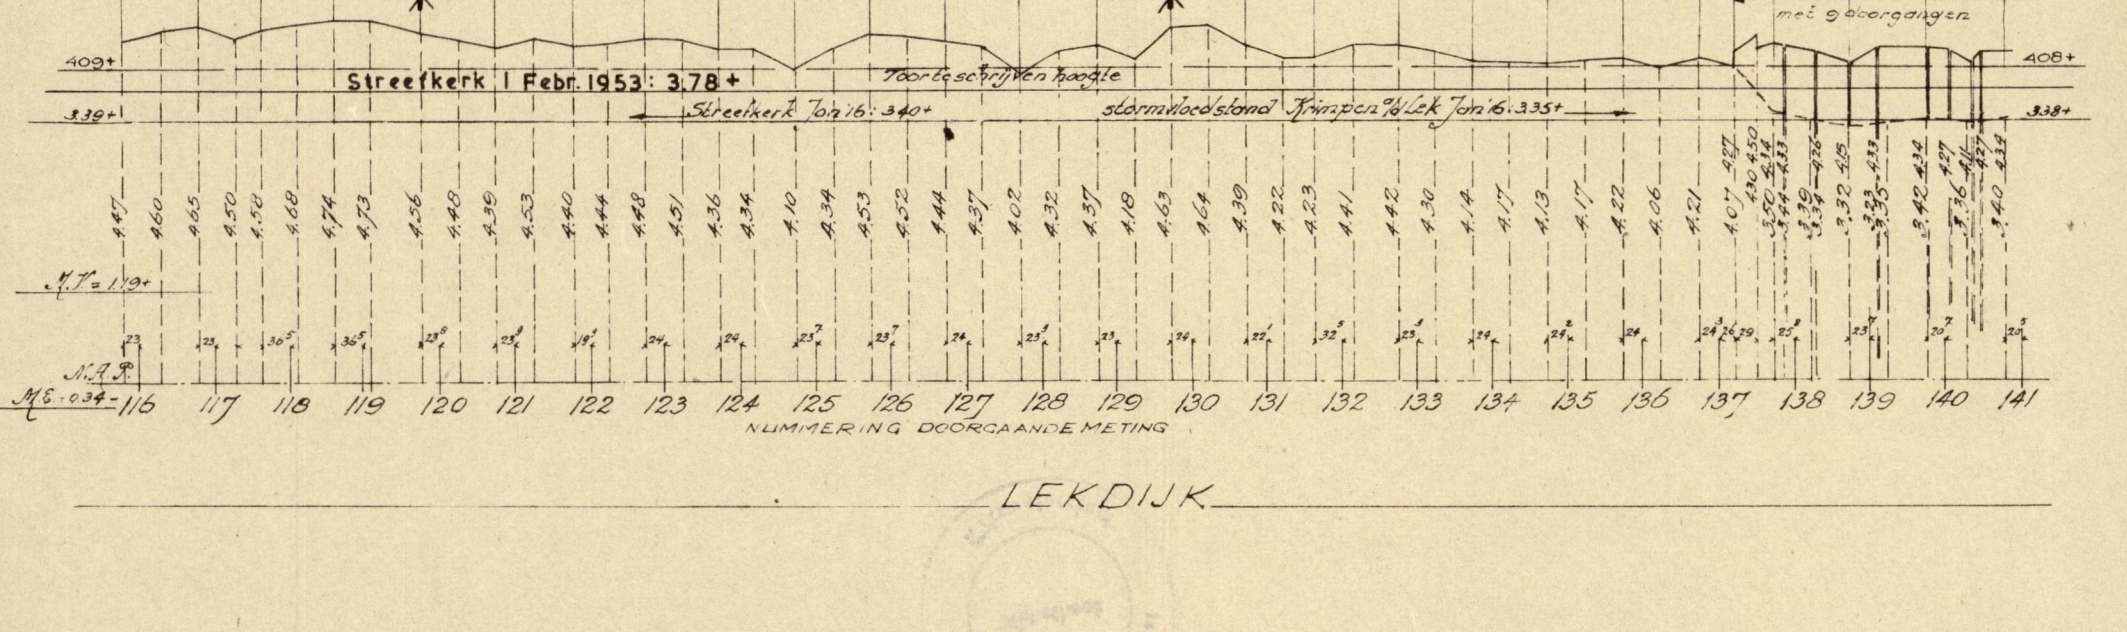 met 9 doorgangen
409+
Streefkerk 1 Febr. 1953: 3.78+
Voorteschrijven hoogte
408+
3.39+
Streefkerk Jan '16: 340+
stormvloedstand Krimpen a/d Lek Jan '16: 335+
3.38+
4.27 4.50 4.34 4.33 4.26 4.15 4.33 4.34 4.27 4.11 4.27 4.34
4.47 4.60 4.65 4.50 4.58 4.68 4.74 4.73 4.56 4.48 4.39 4.53 4.40 4.44 4.48 4.51 4.36 4.34 4.10 4.34 4.53 4.52 4.44 4.37 4.02 4.32 4.37 4.18 4.63 4.64 4.39 4.22 4.23 4.41 4.42 4.30 4.14 4.17 4.13 4.17 4.22 4.06 4.21 4.07 4.30 3.50 3.44 3.39 3.34 3.32 3.23 3.35 3.42 3.36 3.40
M.V. = 1.19+
23 23 36⁵ 36⁵ 23⁸ 23⁹ 19⁹ 24 24 23⁷ 23⁷ 24 23⁹ 23 24 22¹ 32⁵ 23⁹ 24 24² 24 24³ 26 29 25² 23⁷ 20⁷ 20⁵
N.A.P.
M.E. - 0.34 -
116 117 118 119 120 121 122 123 124 125 126 127 128 129 130 131 132 133 134 135 136 137 138 139 140 141
NUMMERING DOORGAANDE METING
LEKDIJK